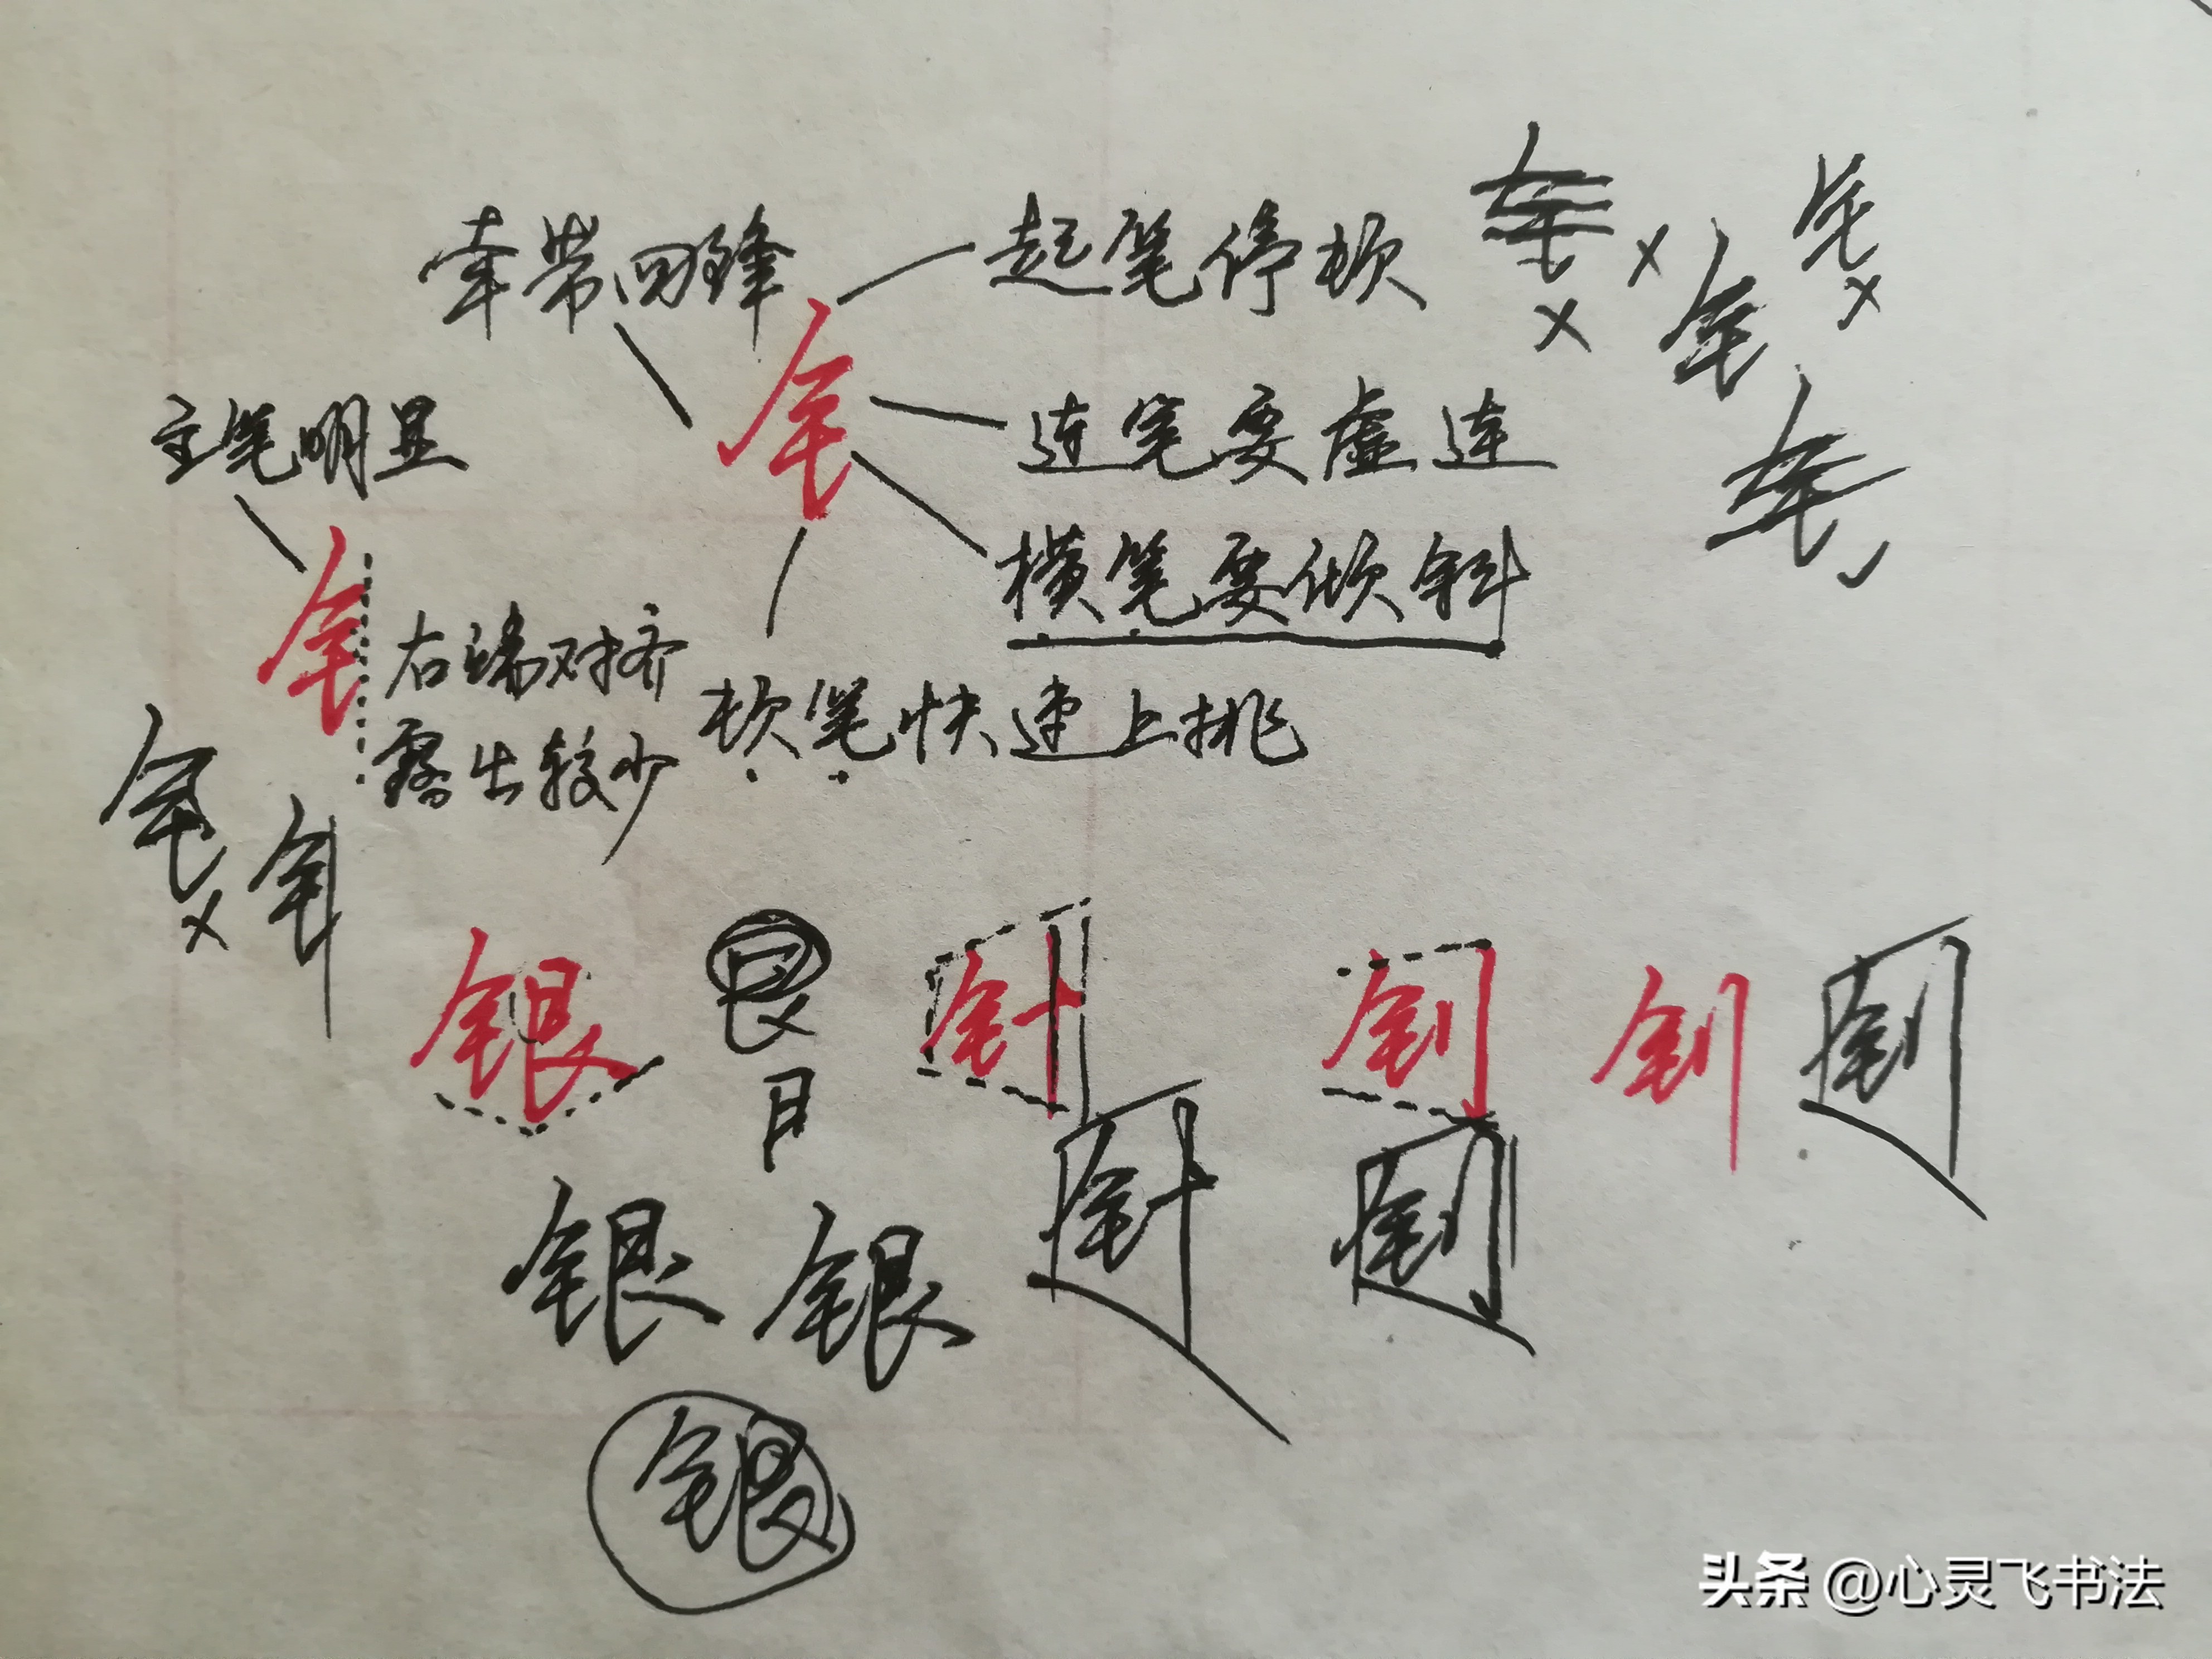 牵带回锋
起笔停顿
主笔明显
钅
连笔要虚连
横笔要倾斜
钅
右端对齐
露出较少
顿笔快速上挑
银
艮
针
钊
钊
钊
针
钊
银
银
银
头条 @心灵飞书法